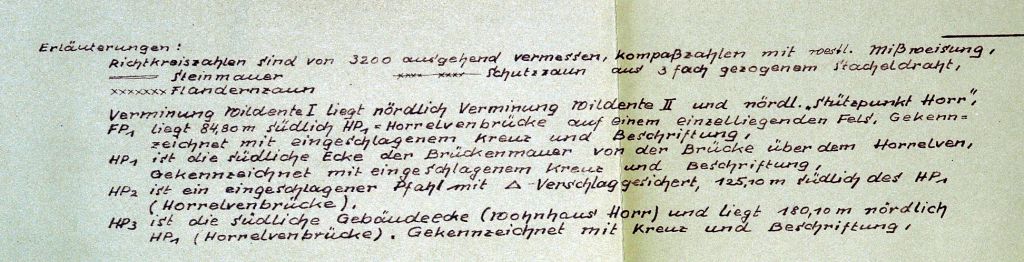 Erläuterungen:
Richtkreiszahlen sind von 3200 ausgehend vermessen, kompaßzahlen mit westl. Mißweisung,
═══ Steinmauer xxxx xxxx Schutzzaun aus 3fach gezogenem Stacheldraht,
xxxxxxx Flandernzaun
Verminung Wildente I liegt nördlich Verminung Wildente II und nördl. „Stützpunkt Horr",
FP1 liegt 84,80m südlich HP1 = Horrelvenbrücke auf einem einzelliegenden Fels, Gekenn=
zeichnet mit eingeschlagenem Kreuz und Beschriftung,
HP1 ist die südliche Ecke der Brückenmauer von der Brücke über dem Horrelven,
Gekennzeichnet mit eingeschlagenem Kreuz und Beschriftung,
HP2 ist ein eingeschlagener Pfahl mit △ Verschlag gesichert, 125,10m südlich des HP1
(Horrelvenbrücke).
HP3 ist die südliche Gebäudeecke (Wohnhaus Horr) und liegt 180,10m nördlich
HP1 (Horrelvenbrücke). Gekennzeichnet mit Kreuz und Beschriftung,